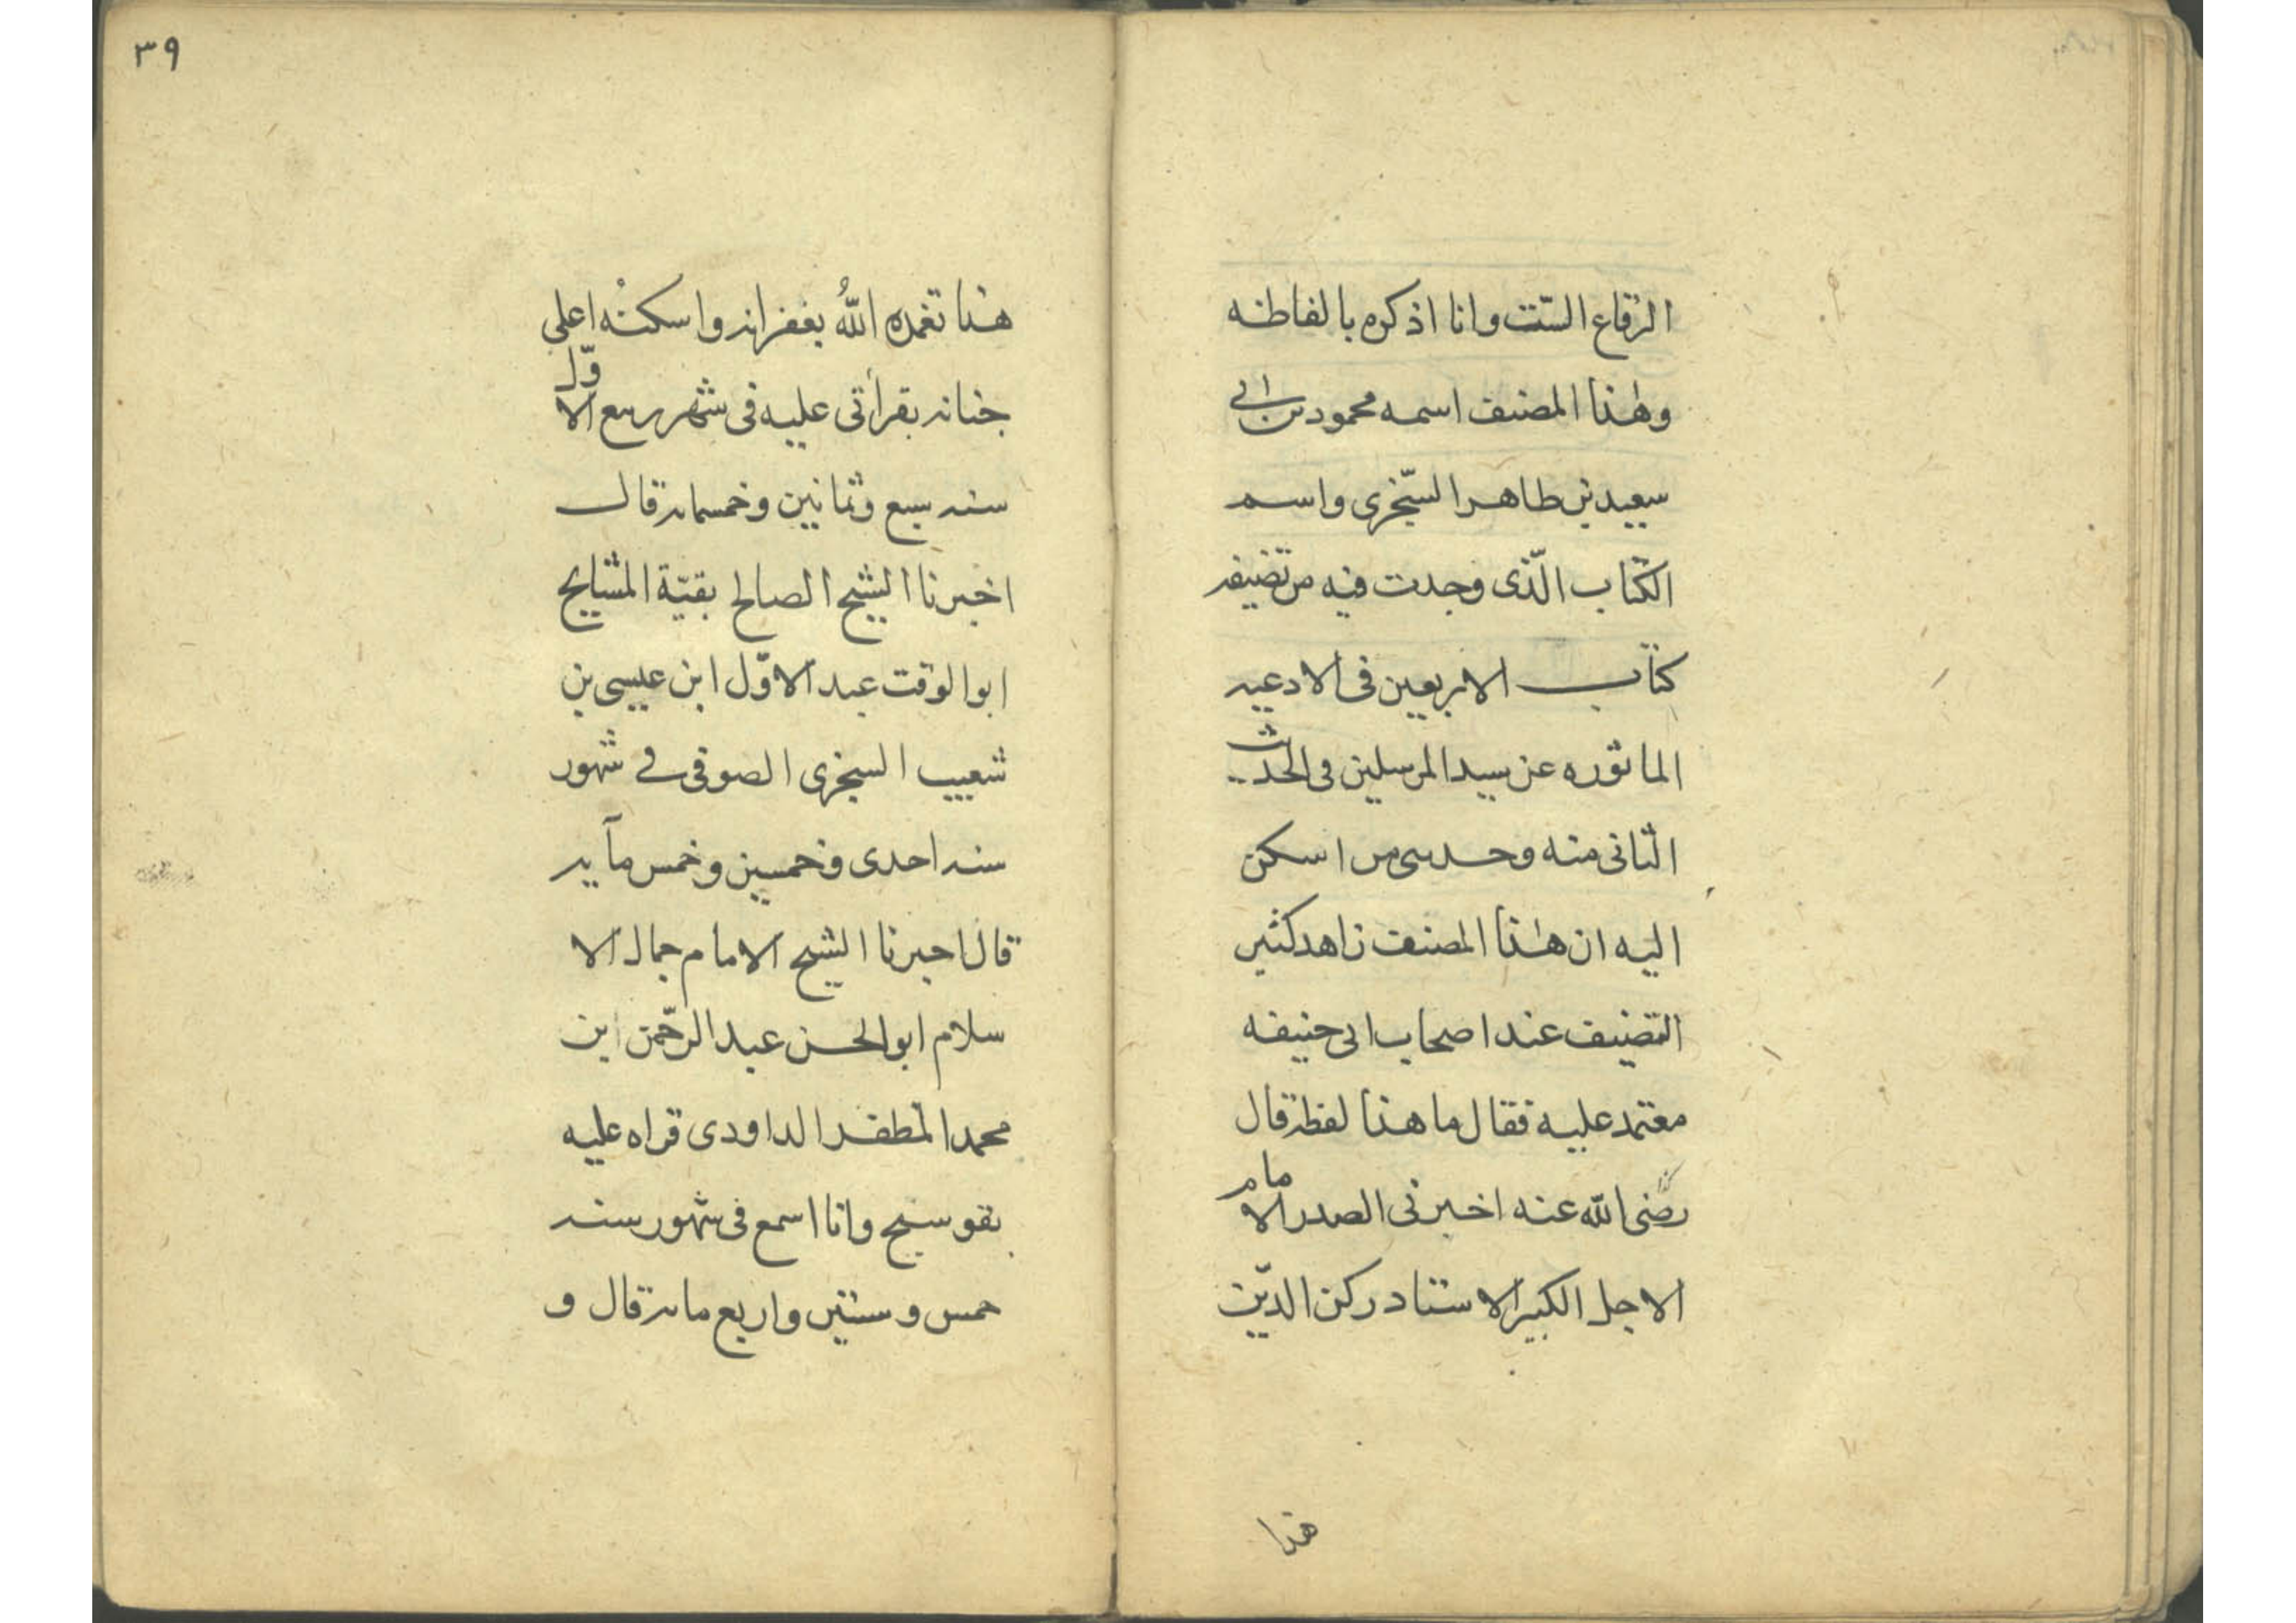 الرقاع الستت وانا اذكره بالفاظه
وهذا المصنف اسمه محمود بن ابى
سعيد بن طاهر السّجزى واسم
الكتاب الّذى وجدت فيه من تصنيفه
كتاب الاربعين فى الادعيه
الماثوره عن سيد المرسلين فى الحديث
الثانى منه وحدثنى من اسكن
اليه ان هذا المصنف زاهد كثير
التصنيف عند اصحاب ابى حنيفه
معتمد عليه فقال ما هذا لفظه قال
رضى الله عنه اخبرنى الصدر الامام
الاجل الكبير الاستاد ركن الدّين
هذا
٣٩
هذا تغمده اللهُ بغفرانه واسكنه اعلى
جنانه بقرأتى عليه فى شهر ربيع الاوّل
سنه سبع وثمانين وخمسمايه قال
اخبرنا الشيخ الصالح بقيّة المشايخ
ابو الوقت عبد الاوّل ابن عيسى بن
شعيب السجزى الصوفى فى شهور
سنه احدى وخمسين وخمس مآيه
قال اخبرنا الشيخ الامام جمال الا
سلام ابو الحسن عبد الرحّمن ابن
محمد المظفر الداودى قراه عليه
بقوسنج وانا اسمع فى شهور سنه
خمس وستين واربع مايه قال و